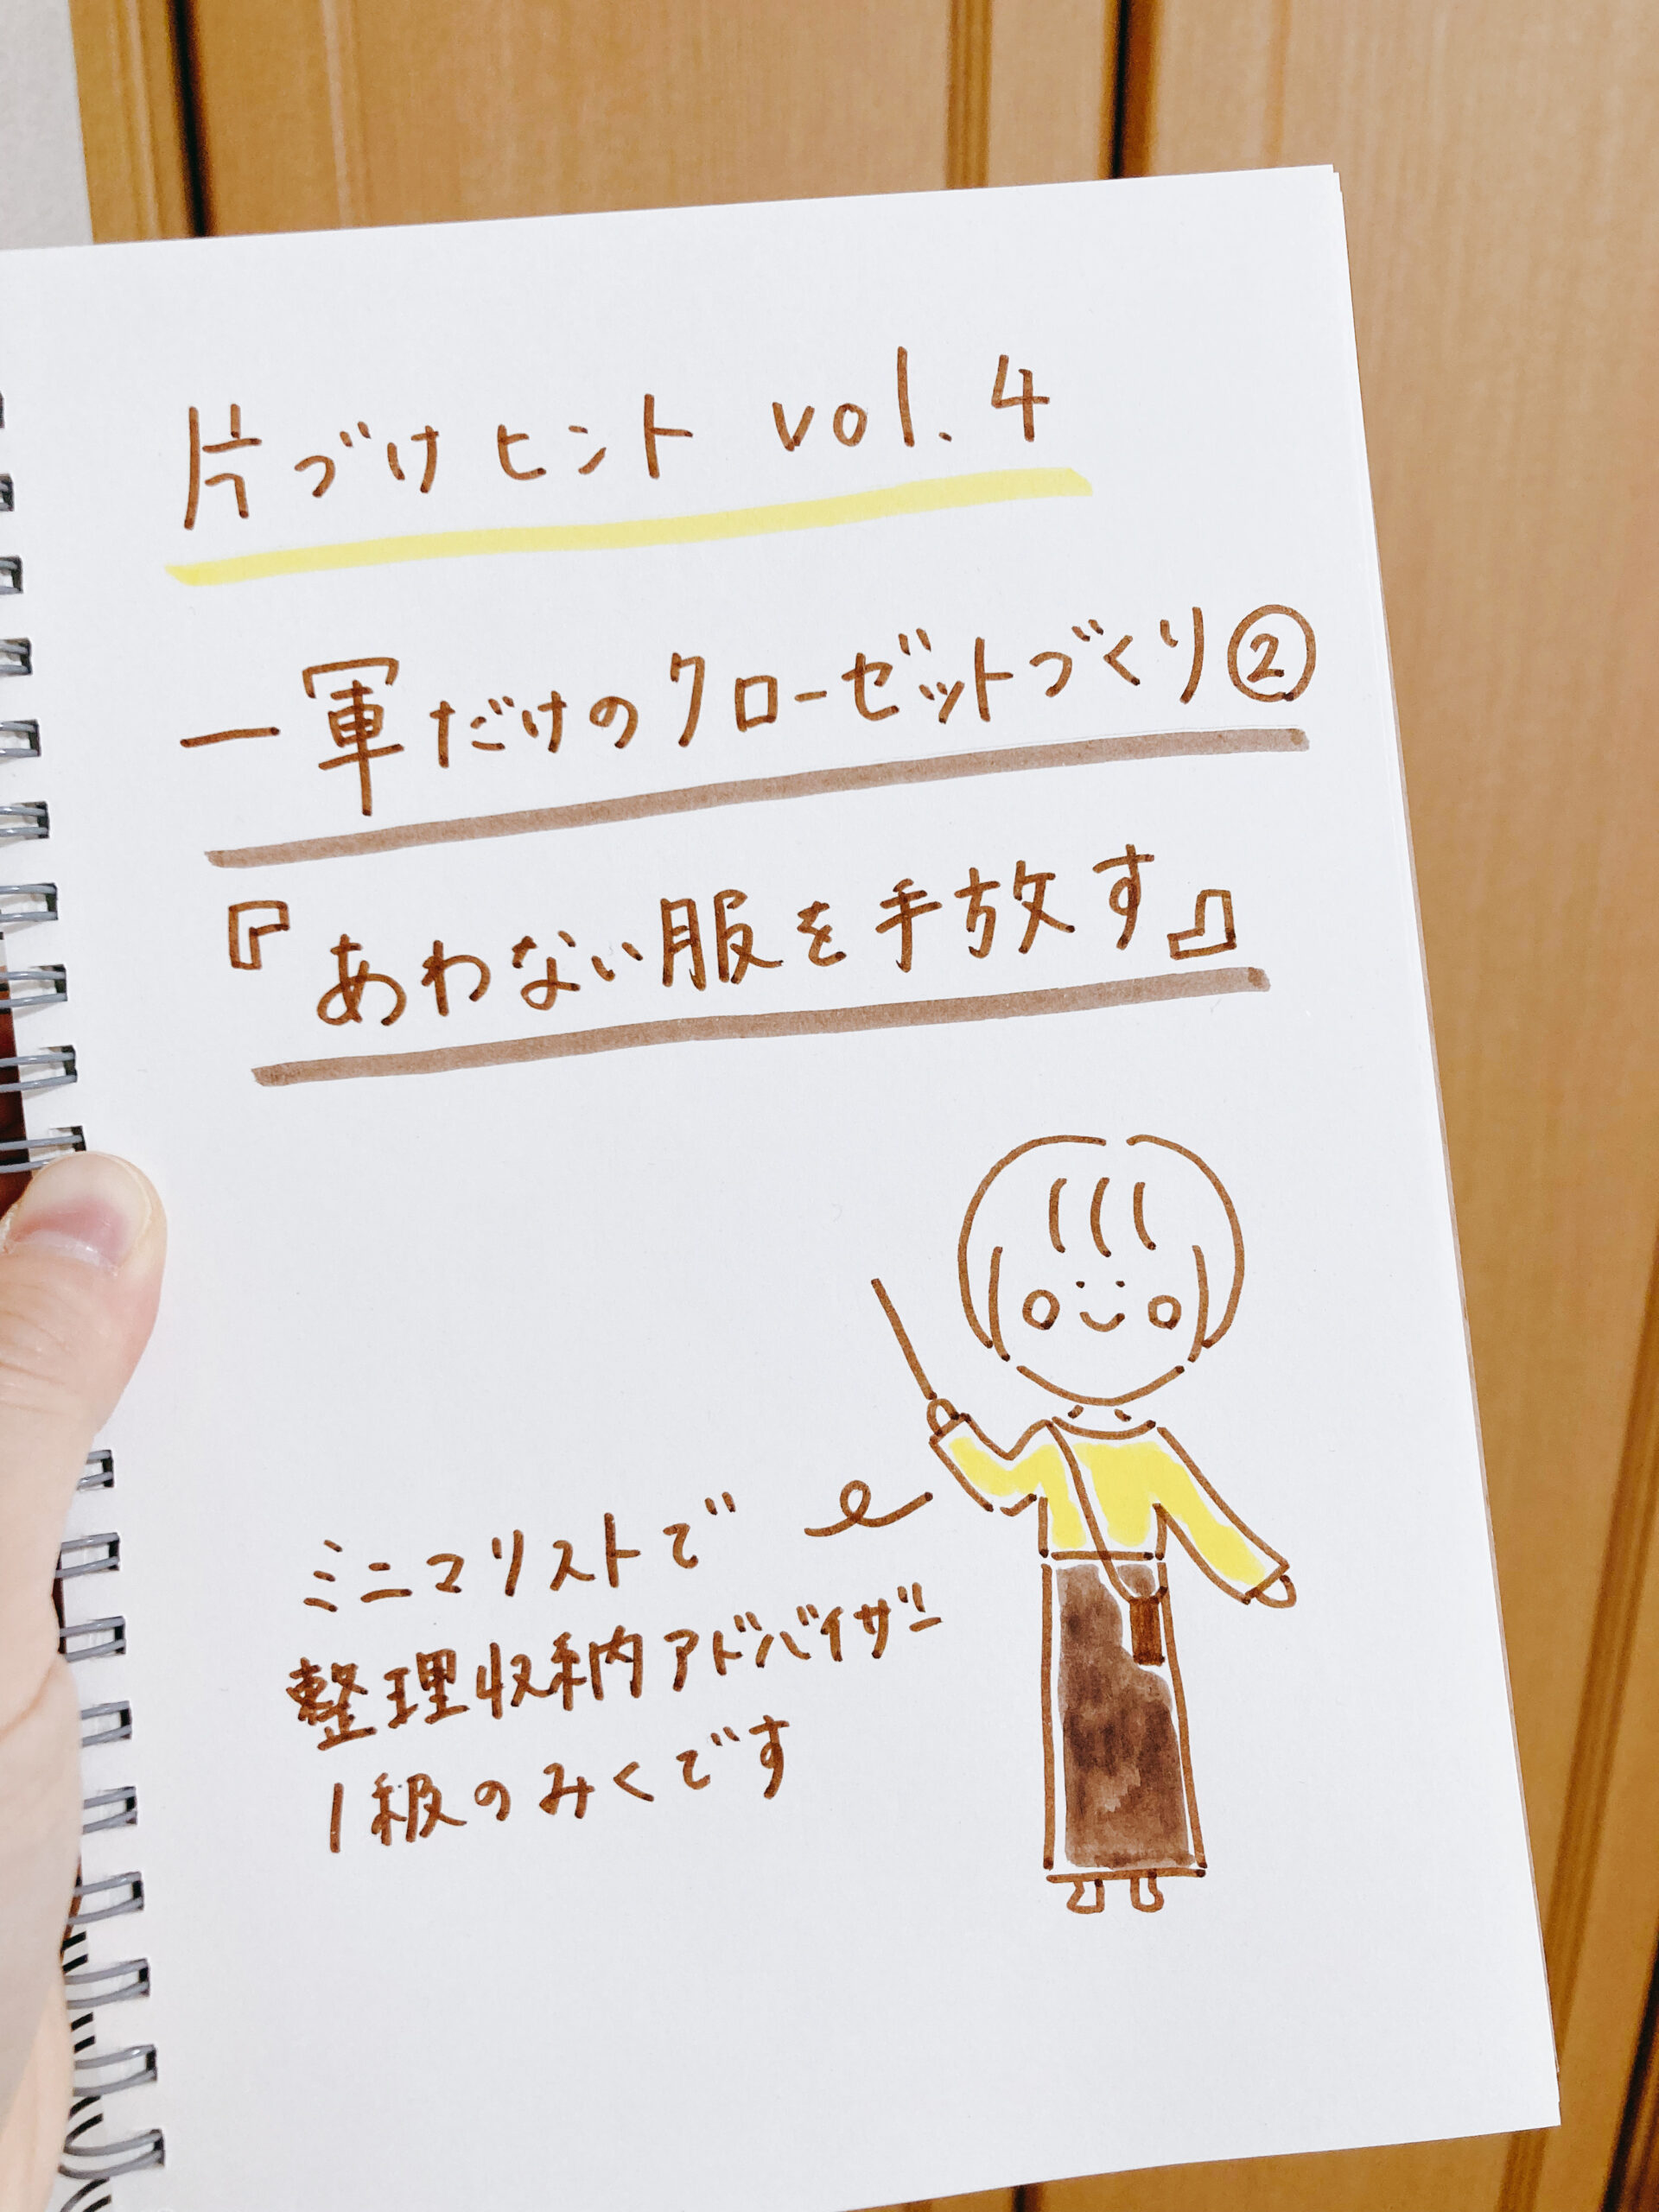 片づけヒント vol.4
一軍だけのクローゼットづくり②
『あわない服を手放す』
ミニマリストで
整理収納アドバイザー
1級のみくです